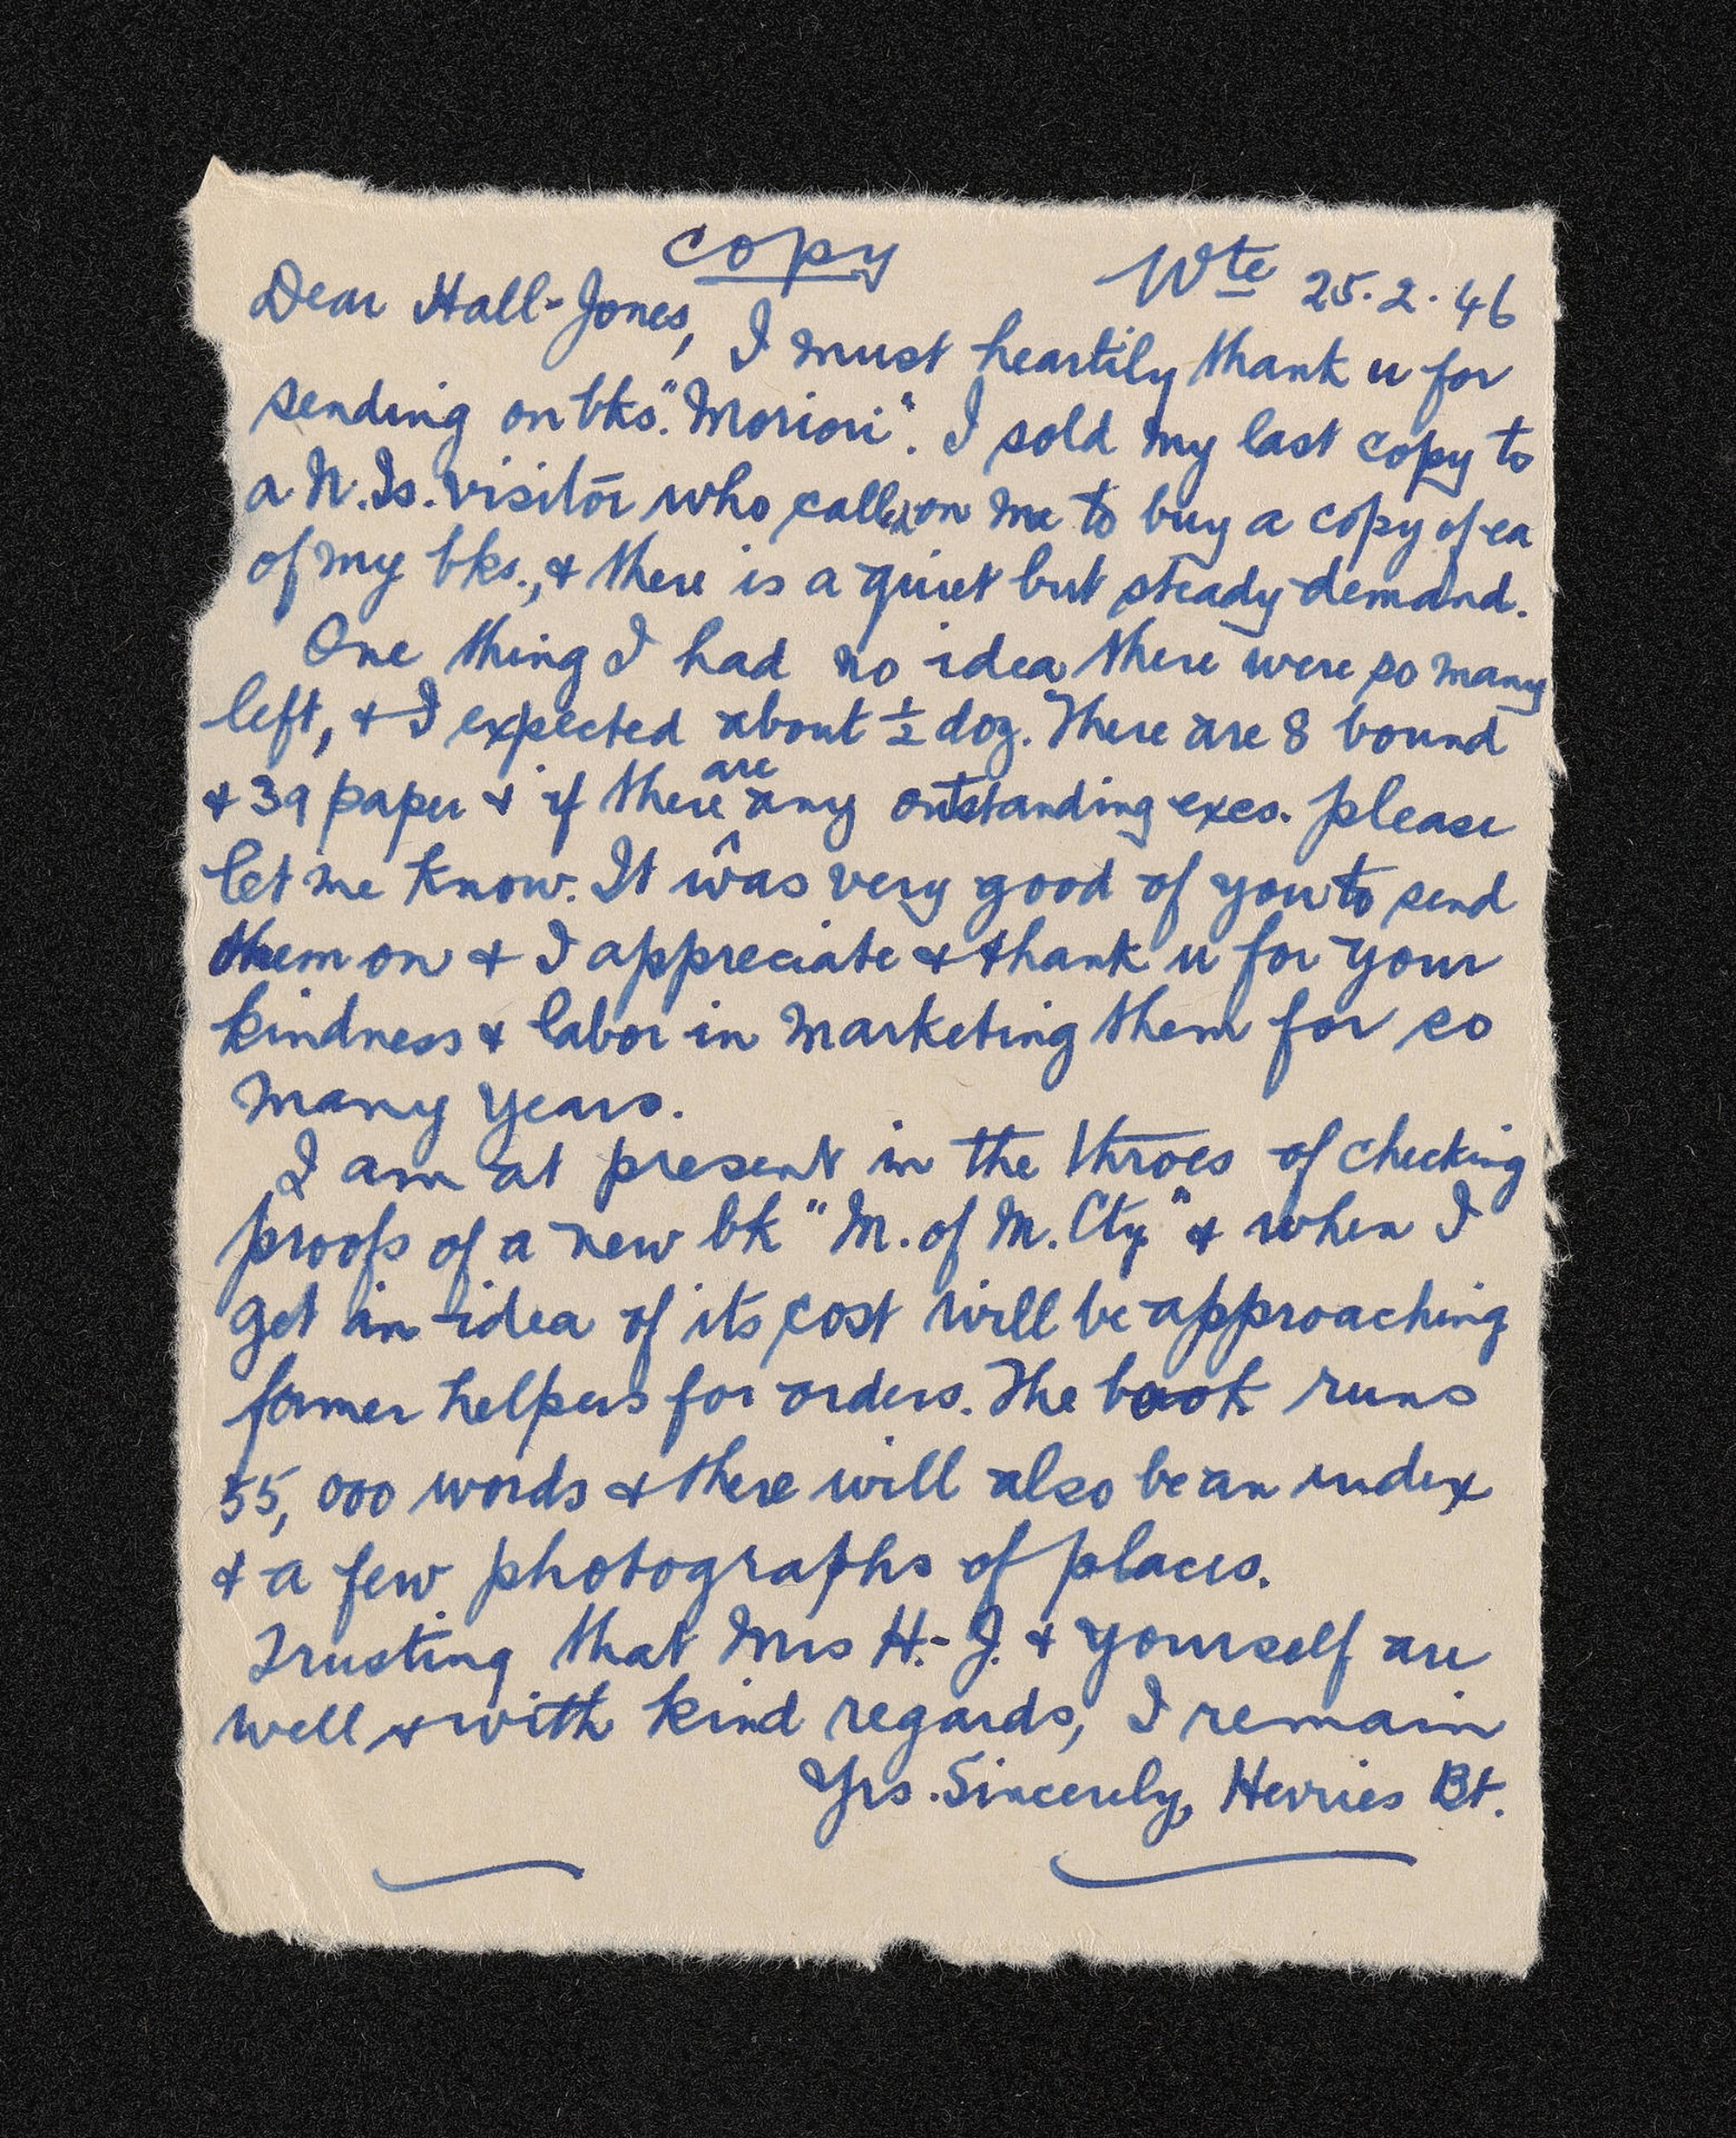 Copy
Wte 25.2.46
Dear Hall-Jones, I must heartily thank u for
sending on bks. "Moriori". I sold my last copy to
a N. Is. visitor who called on me to buy a copy of ea
of my bks., & there is a quiet but steady demand.
One thing I had no idea there were so many
left, & I expected about ½ doz. There are 8 bound
& 39 paper & if there are any outstanding exes. please
let me know. It was very good of you to send
them on & I appreciate & thank u for your
kindness & labor in marketing them for so
many years.
I am at present in the throes of checking
proofs of a new bk "M. of M. Cty" & when I
get an idea of its cost will be approaching
former helpers for orders. The book runs
55,000 words & there will also be an index
& a few photographs of places.
Trusting that Mrs H.-J. & yourself are
well & with kind regards, I remain
Yrs. Sincerely, Herries Bt.